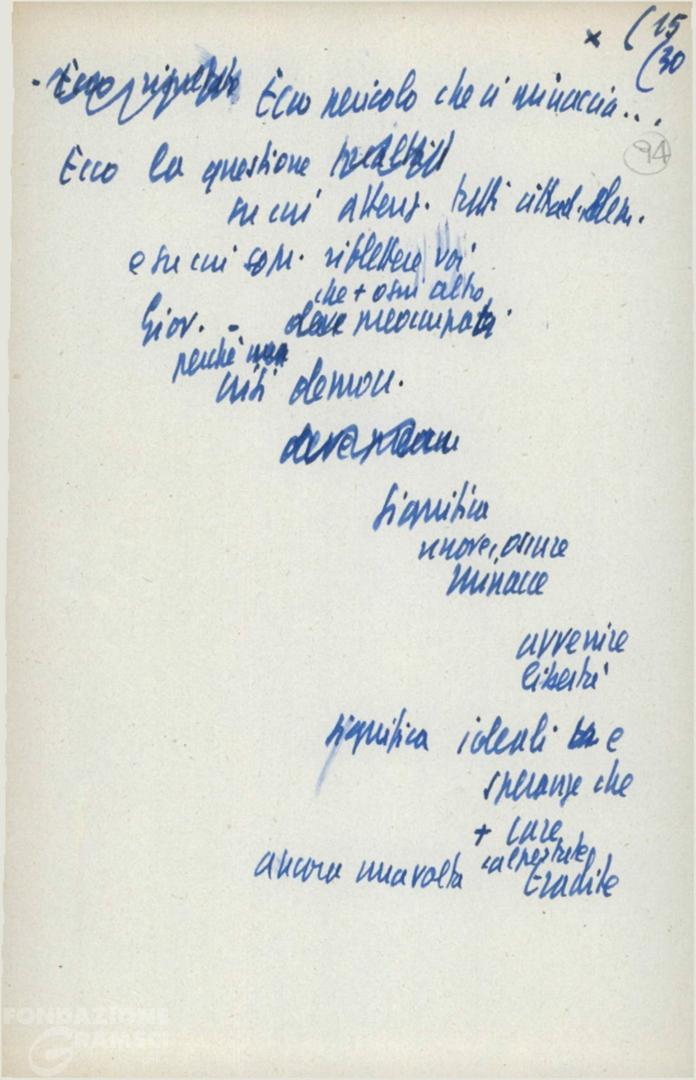 x (15
(30
Ecco pericolo che ci minaccia...
94
Ecco la questione
su cui attenz. tutti cittad. dem.
e su cui sopr. riflettere voi
che + ogni altro
Giov. - deve preoccupata
perché
crisi democr.
significa
nuove, oscure
minacce
avvenire
libertà
significa ideali e
speranze che
+ care
calpestate
ancora una volta tradite
FONDAZIONE
GRAMSCI